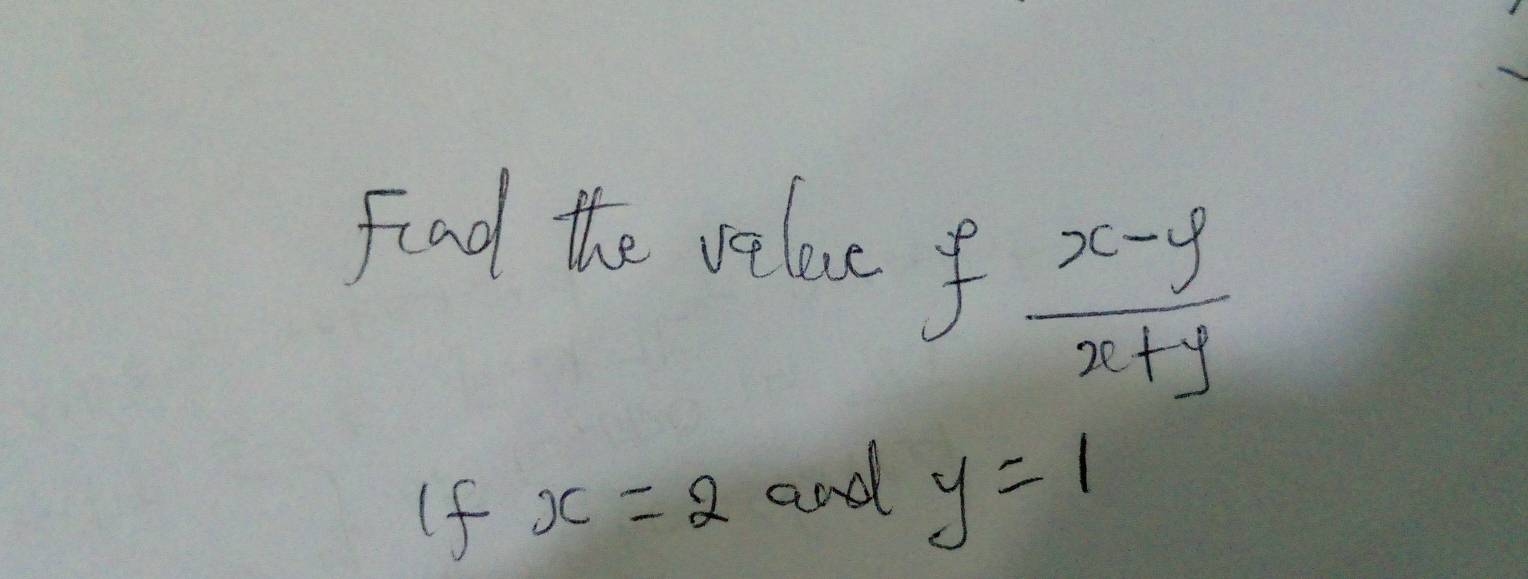 Find the value of x-y
x+y
If x = 2 and y = 1